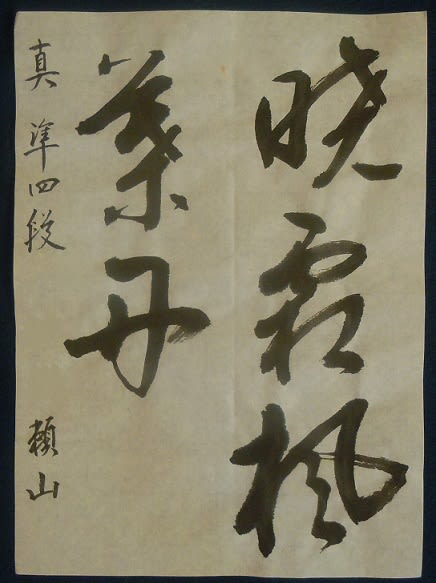 暁霜楓
葉丹
真 準四段 頼山